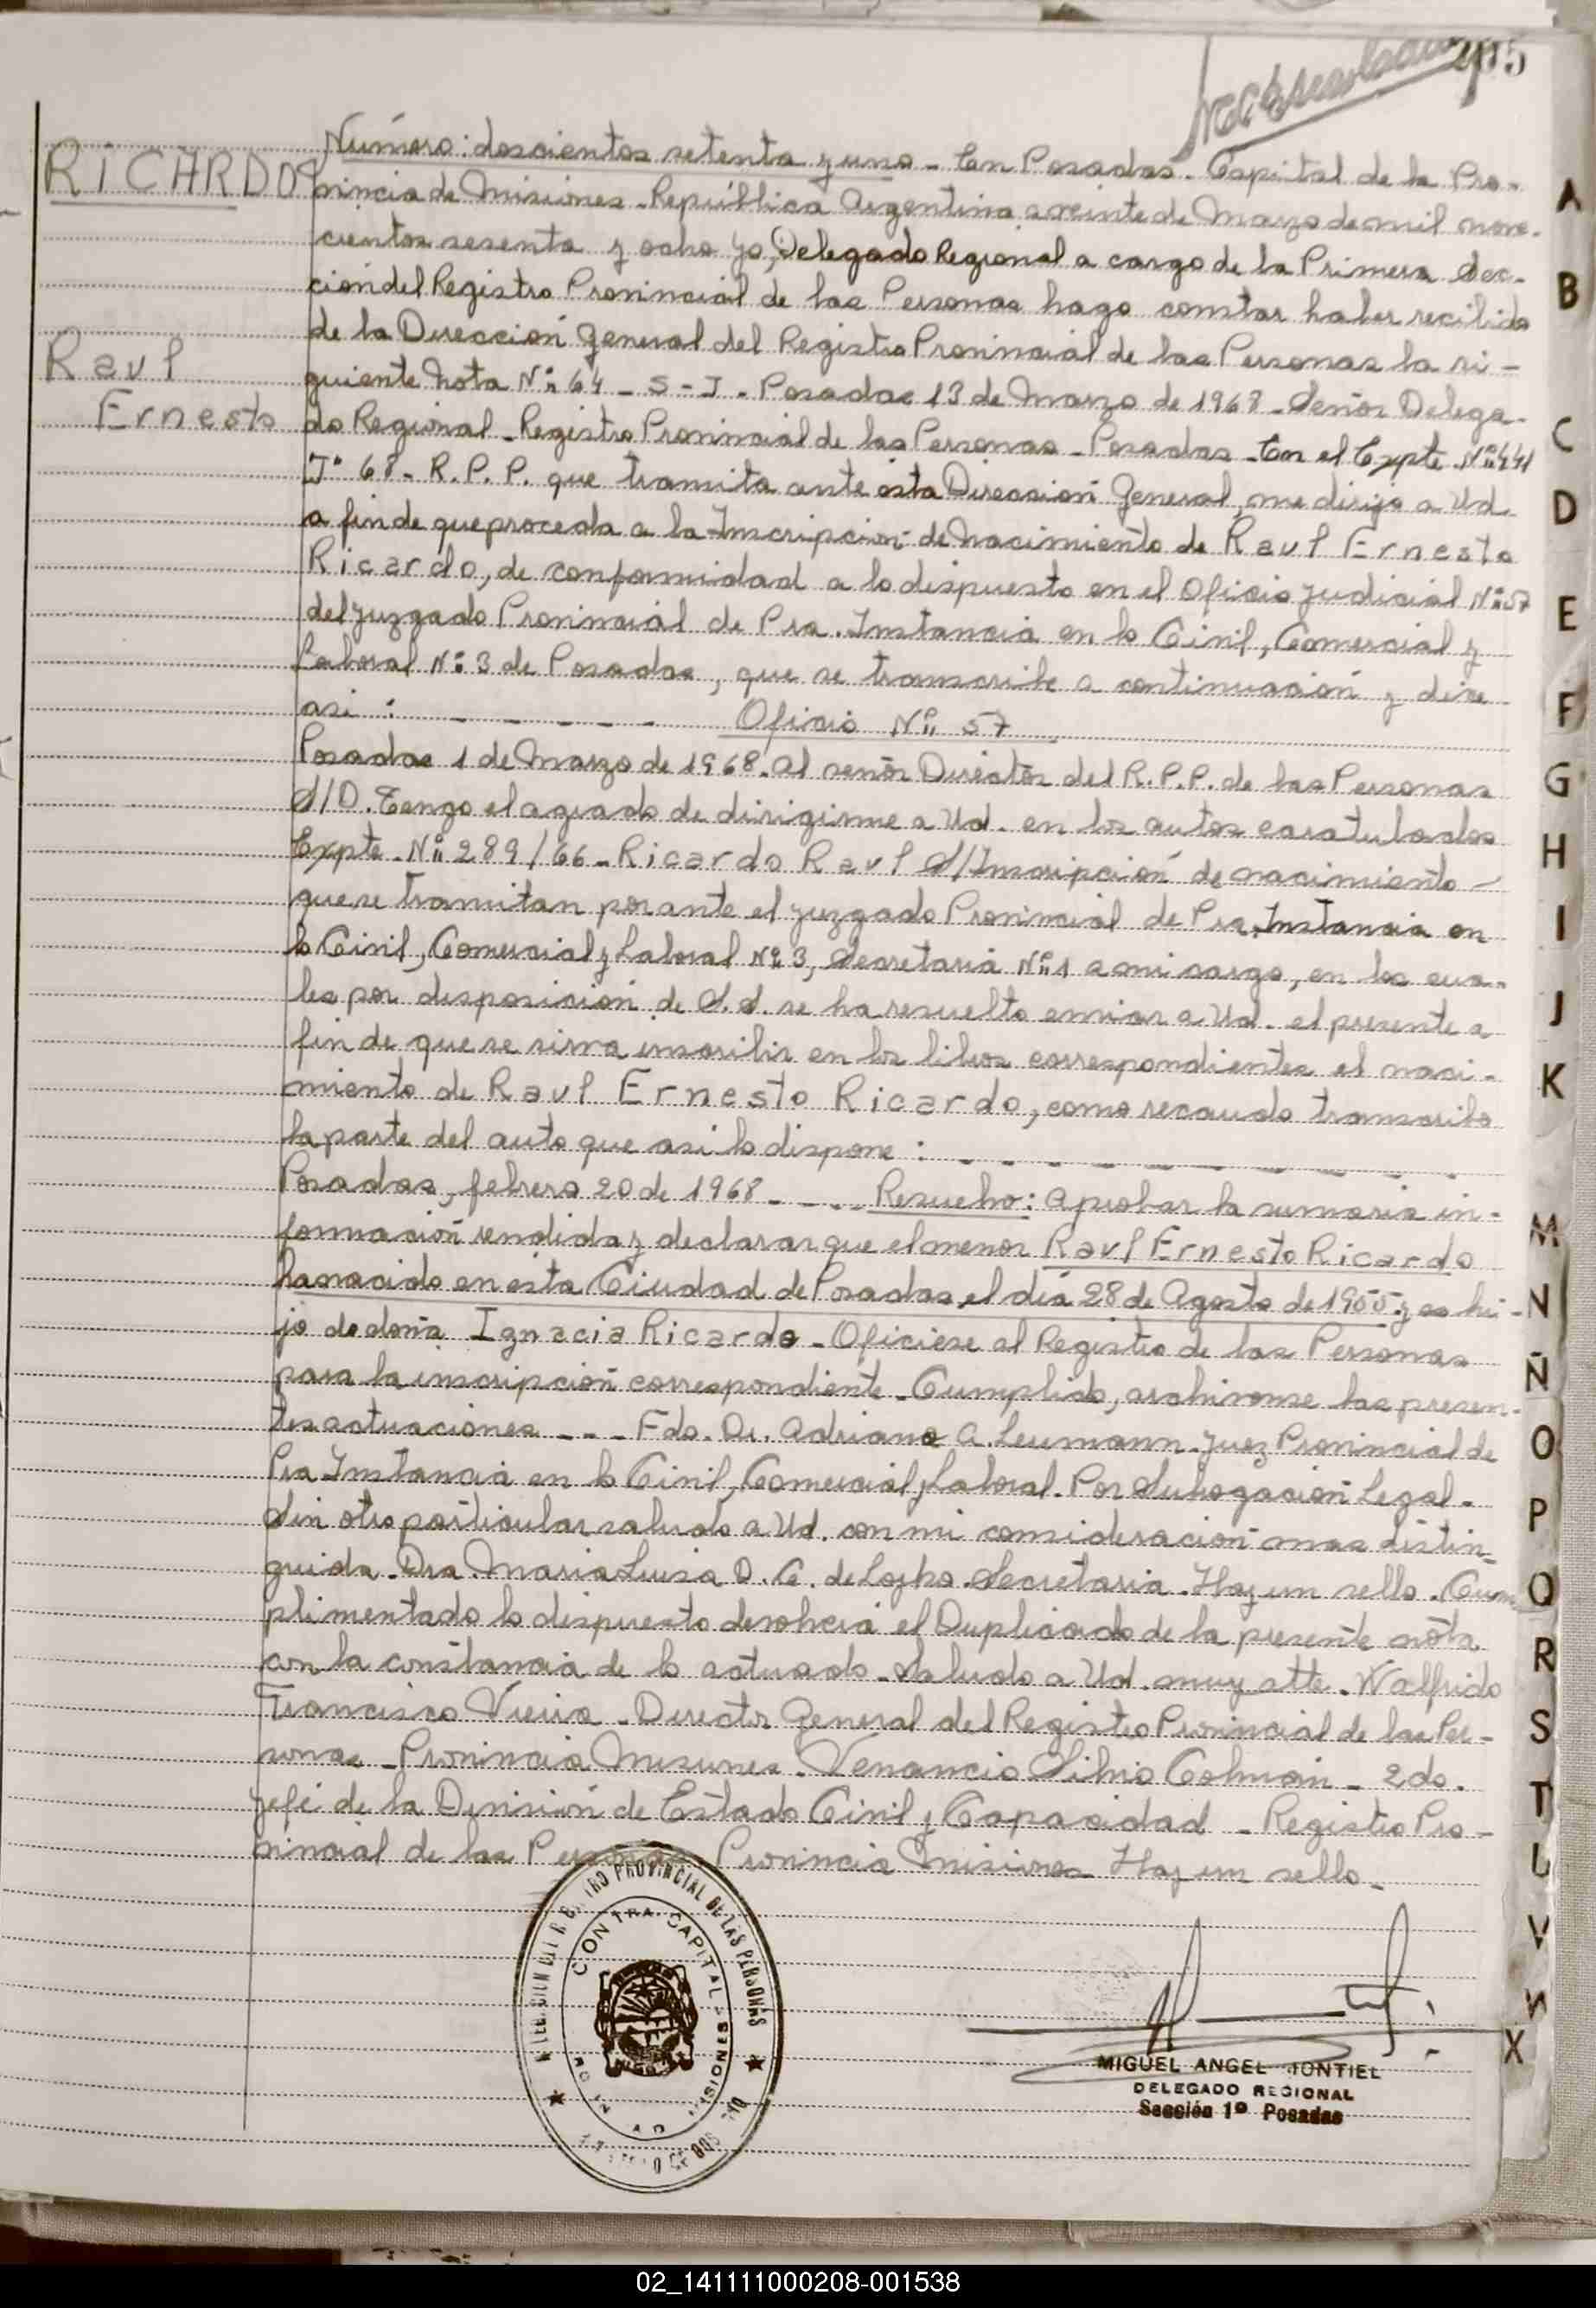 205
RICARDO
Raul
Ernesto
Número: doscientos setenta y uno - En Posadas - Capital de la Pro-
vincia de Misiones - República Argentina a veinte de Marzo de mil nove-
cientos sesenta y ocho yo, Delegado Regional a cargo de la Primera Sec-
ción del Registro Provincial de las Personas hago constar haber recibido
de la Dirección General del Registro Provincial de las Personas la si-
guiente Nota Nº 64 - S - J - Posadas 13 de Marzo de 1968 - Señor Delega-
do Regional - Registro Provincial de las Personas - Posadas - En el Expte. Nº 441
J° 68 - R. P. P. que tramita ante esta Dirección General, me dirijo a Ud.
a fin de que proceda a la Inscripción de Nacimiento de Raul Ernesto
Ricardo, de conformidad a lo dispuesto en el Oficio Judicial Nº 57
del Juzgado Provincial de Pra. Instancia en lo Civil, Comercial y
Laboral Nº 3 de Posadas, que se transcribe a continuación y dice
asi : - - - - - - Oficio Nº 57
Posadas 1 de Marzo de 1968. Al señor Director del R. P. P. de las Personas
S/D. Tengo el agrado de dirigirme a Ud. en los autos caratulados
Expte. Nº 289/66 - Ricardo Raul S/Inscripción de nacimiento -
que se tramitan por ante el Juzgado Provincial de Pra. Instancia en
lo Civil, Comercial y Laboral Nº 3, Secretaria Nº 1 a mi cargo, en los cua-
les por disposición de S.S. se ha resuelto enviar a Ud. el presente a
fin de que se sirva inscribir en los libros correspondientes el naci-
miento de Raul Ernesto Ricardo, como recaudo transcribo
la parte del auto que asi lo dispone : - - - - - - - - -
Posadas, febrero 20 de 1968 - - - - Resuelvo: Aprobar la sumaria in-
formación rendida y declarar que el menor Raul Ernesto Ricardo
ha nacido en esta Ciudad de Posadas, el día 28 de Agosto de 1955 y es hi-
jo de doña Ignacia Ricardo - Oficiese al Registro de las Personas
para la inscripción correspondiente - Cumplido, archivense las presen-
tes actuaciones - - - Fdo. Dr. Adriano A. Leumann - Juez Provincial de
Pra Instancia en lo Civil, Comercial y Laboral. Por Subrogación Legal.
Sin otro particular saludo a Ud. con mi consideración mas distin-
guida - Dra Maria Luisa D. C. de - Secretaria - Hay un sello - Cum
plimentado lo dispuesto devolverá el Duplicado de la presente nota
con la constancia de lo actuado - Saludo a Ud. muy atte. Walfrido
Francisco Vieira - Director General del Registro Provincial de las Per-
sonas - Provincia Misiones - Venancio Silvio Colman - 2do.
Jefe de la División de Estado Civil y Capacidad - Registro Pro-
vincial de las Personas Provincia Misiones Hay un sello -
REGISTRO PROVINCIAL DE LAS PERSONAS
CONTRA CAPITAL
MISIONES
MIGUEL ANGEL MONTIEL
DELEGADO REGIONAL
Sección 1º Posadas
A
B
C
D
E
F
G
H
I
J
K
M
N
Ñ
O
P
Q
R
S
T
U
V
W
X
02_141111000208-001538